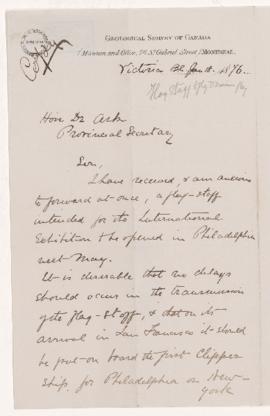 GEOLOGICAL SURVEY OF CANADA
Museum and Office, 76 St. Gabriel Street, MONTREAL.
Victoria BC Jan 1876.
Flag Staff
Hon. Dr Ash
Provincial Secretary
Sir,
I have received, & am anxious
to forward at once, a flag-staff
intended for the International
Exhibition to be opened in Philadelphia
next May.
It is desirable that no delays
should occur in the transmission
of the flag-staff, & that on its
arrival in San Francisco it should
be put on board the first Clipper
Ship for Philadelphia or New-
York